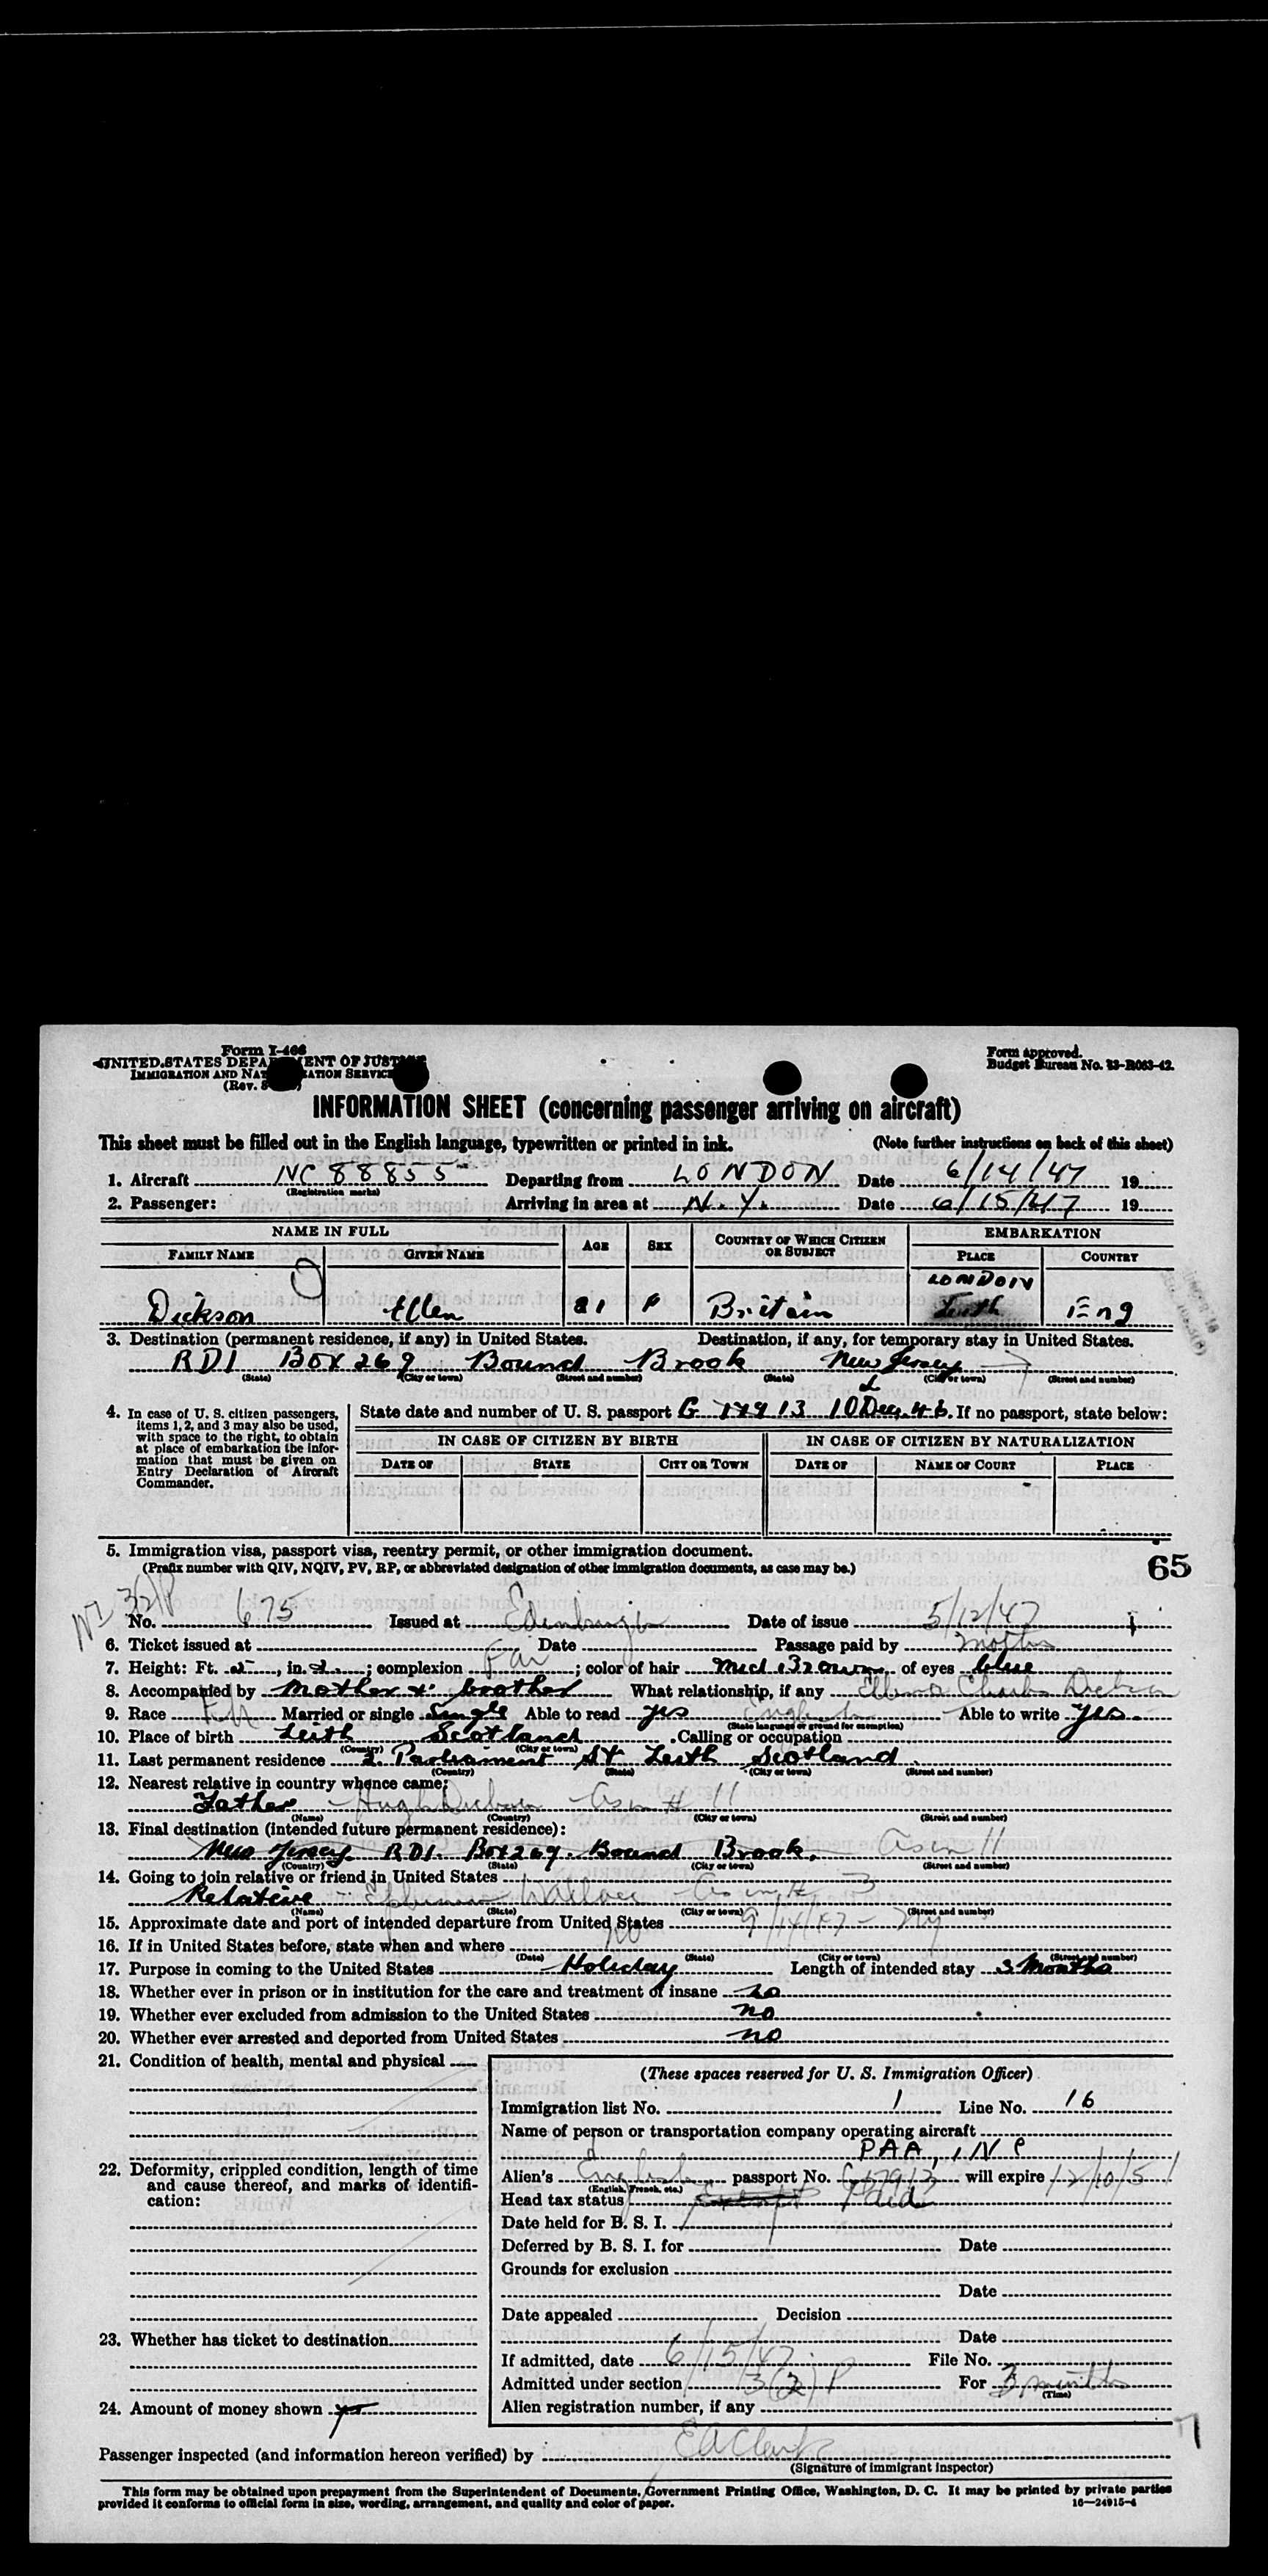 Form I-466
UNITED STATES DEPARTMENT OF JUSTICE
IMMIGRATION AND NATURALIZATION SERVICE
(Rev.
Form approved.
Budget Bureau No. 43-R063-42.
INFORMATION SHEET (concerning passenger arriving on aircraft)
This sheet must be filled out in the English language, typewritten or printed in ink. (Note further instructions on back of this sheet)
1. Aircraft NC 88855 Departing from LONDON Date 6/14/47 19
(Registration marks)
2. Passenger: Arriving in area at N.Y. Date 6/15/47 19
NAME IN FULL AGE SEX COUNTRY OF WHICH CITIZEN OR SUBJECT EMBARKATION
FAMILY NAME GIVEN NAME PLACE COUNTRY
LONDON
Dickson Ellen 21 F Britain Leith Eng
3. Destination (permanent residence, if any) in United States. Destination, if any, for temporary stay in United States.
RD1 Box 269 Bound Brook New Jersey
(State) (City or town) (Street and number) (State) (City or town) (Street and number)
4. In case of U. S. citizen passengers, items 1, 2, and 3 may also be used, with space to the right, to obtain at place of embarkation the information that must be given on Entry Declaration of Aircraft Commander.
State date and number of U. S. passport G 17913 10 Dec. 46. If no passport, state below:
IN CASE OF CITIZEN BY BIRTH IN CASE OF CITIZEN BY NATURALIZATION
DATE OF STATE CITY OR TOWN DATE OF NAME OF COURT PLACE
5. Immigration visa, passport visa, reentry permit, or other immigration document.
(Prefix number with QIV, NQIV, PV, RP, or abbreviated designation of other immigration documents, as case may be.)
65
No. 675 Issued at Edinburgh Date of issue 5/12/47
6. Ticket issued at Date Passage paid by mother
7. Height: Ft. 5, in. 2; complexion Fair; color of hair Med Brown of eyes blue
8. Accompanied by Mother & brother What relationship, if any Ellen & Charles Dickson
9. Race Married or single Single Able to read yes English Able to write yes
(State language or ground for exemption)
10. Place of birth Leith Scotland Calling or occupation
(Country) (City or town)
11. Last permanent residence 2 Parliament St Leith Scotland
(Country) (State) (City or town) (Street and number)
12. Nearest relative in country whence came:
Father Hugh Dickson As in # 11
(Name) (Country) (City or town) (Street and number)
13. Final destination (intended future permanent residence):
New Jersey RD1. Box 269. Bound Brook. As in 11
(Country) (State) (City or town) (Street and number)
14. Going to join relative or friend in United States
Relative Wallace As in # 3
(Name) (State) (City or town) (Street and number)
15. Approximate date and port of intended departure from United States 9/14/47 - NY
16. If in United States before, state when and where No
(Date) (State) (City or town) (Street and number)
17. Purpose in coming to the United States Holiday Length of intended stay 3 Months
18. Whether ever in prison or in institution for the care and treatment of insane no
19. Whether ever excluded from admission to the United States no
20. Whether ever arrested and deported from United States no
21. Condition of health, mental and physical
(These spaces reserved for U. S. Immigration Officer)
Immigration list No. 1 Line No. 16
Name of person or transportation company operating aircraft
PAA, INC
22. Deformity, crippled condition, length of time and cause thereof, and marks of identification:
Alien's English passport No. G 17913 will expire 12/10/51
(English, French, etc.)
Head tax status Exempt Paid
Date held for B. S. I.
Deferred by B. S. I. for Date
Grounds for exclusion
Date
Date appealed Decision
23. Whether has ticket to destination
Date
If admitted, date 6/15/47 File No.
Admitted under section 3(2) P For 3 months
(Time)
24. Amount of money shown
Alien registration number, if any
Passenger inspected (and information hereon verified) by E A Clark
(Signature of immigrant inspector)
This form may be obtained upon prepayment from the Superintendent of Documents, Government Printing Office, Washington, D. C. It may be printed by private parties
provided it conforms to official form in size, wording, arrangement, and quality and color of paper. 16—24915-4